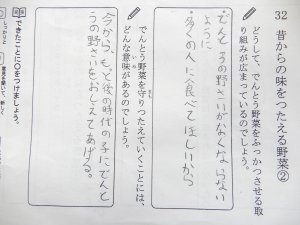 32 昔からの味をつたえる野菜②
どうして、でんとう野菜をふっかつさせる取
り組みが広まっているのでしょう。
・でんとうの野さいがなくならない
ように
・多くの人に食べてほしいから
でんとう野菜を守りつたえていくことには、
どんな意味があるのでしょう。
今から、もっと後の時代の子にでんと
うの野さいをおしえてあげる。
できたことに○をつけましょう。